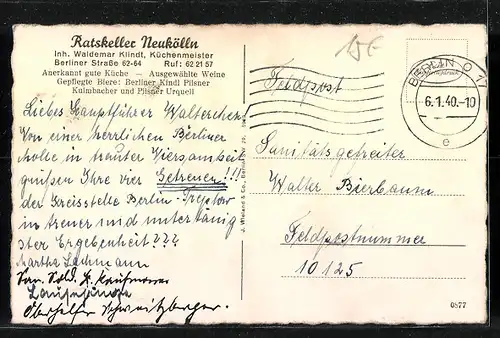 Ratskeller Neukölln
Inh. Waldemar Klindt, Küchenmeister
Berliner Straße 62-64 Ruf: 62 21 57
Anerkannt gute Küche — Ausgewählte Weine
Gepflegte Biere: Berliner Kindl Pilsner
Kulmbacher und Pilsner Urquell
15€
Feldpost
BERLIN O 17
6.1.40.-10
e
Liebes Hauptführer Walterchen!
Von einer herrlichen Berliner
in trauter Viersamkeit
grüßen Ihre vier Getreuen!!!
der Kreisstelle Berlin-Treptow
in treuer und untertänig
ster Ergebenheit???
Martha Lachmann
Kaufmann
Sanitätsgefreiter
Walter Bierbaum
Feldpostnummer
10125
0877